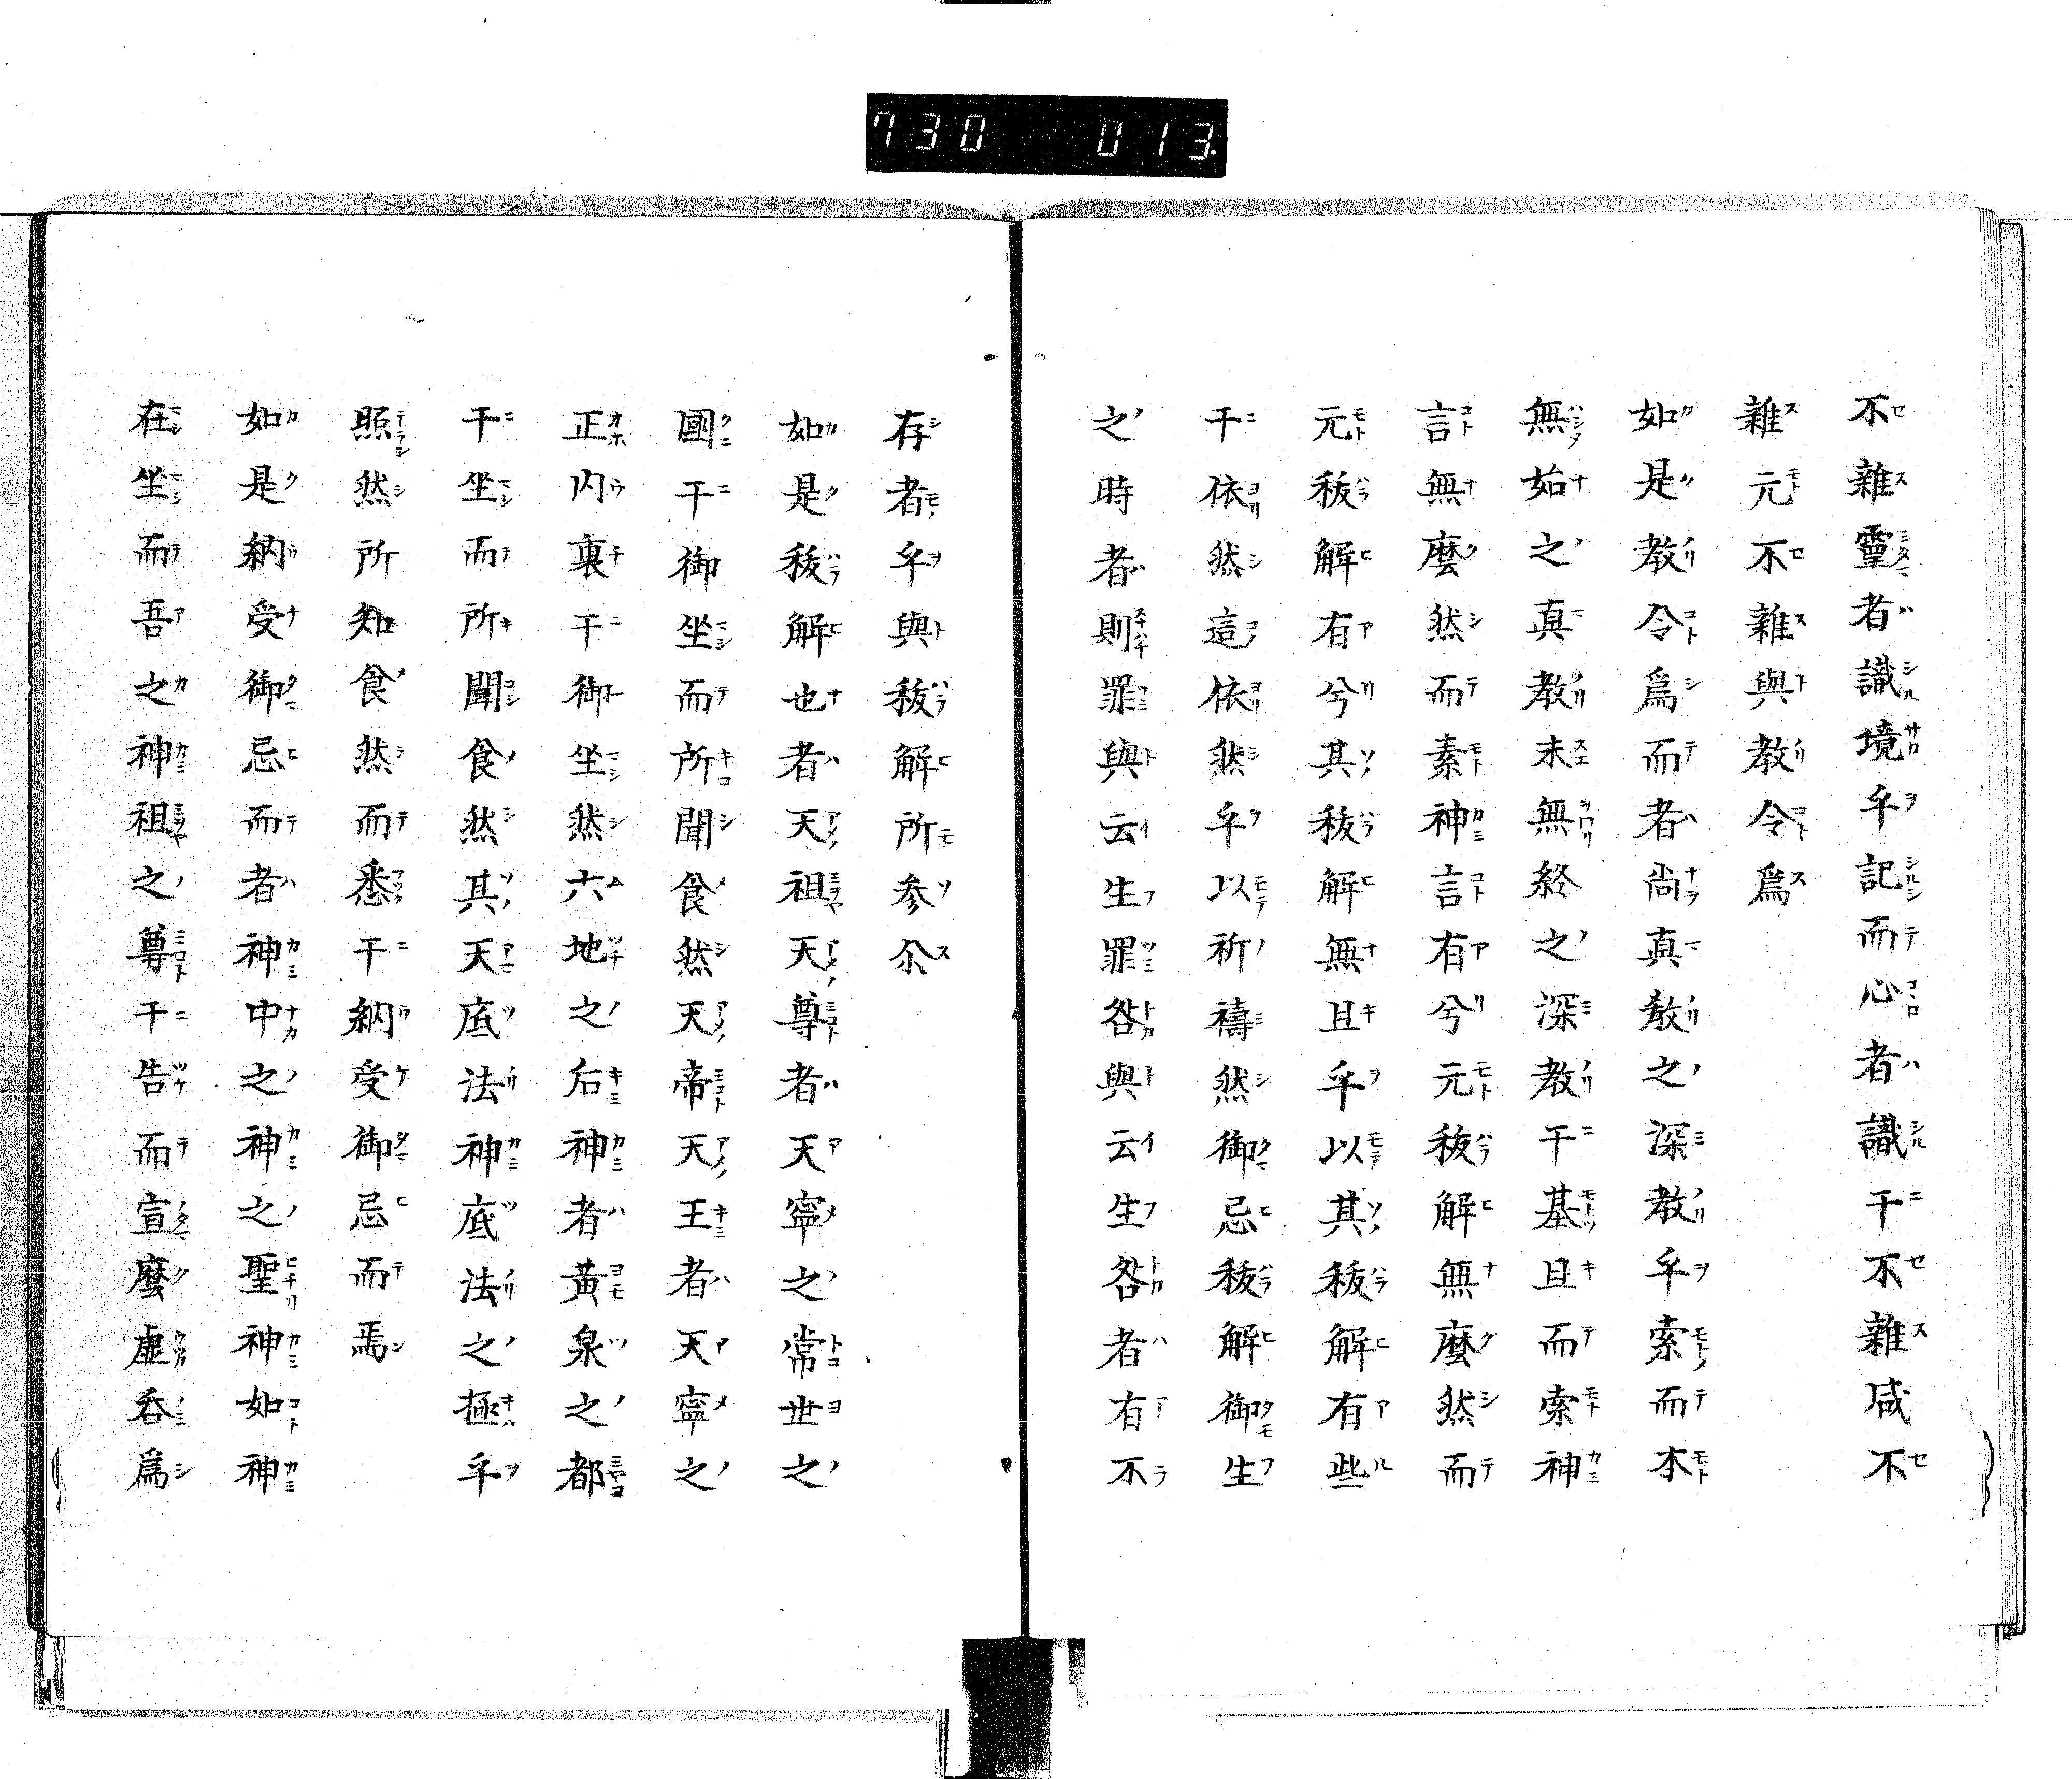 730 013
不雜靈者識境乎記而心者識干不雜咸不
雜元不雜與教令爲
如是教令爲而者尚真教之深教乎索而本
無始之真教末無終之深教干基且而索神
言無麼然而素神言有兮元秡解無麼然而
元秡解有兮其秡解無且乎以其秡解有些
干依然這依然乎以祈禱然御忌秡解御生
之時者則罪與云生罪咎與云生咎者有不
存者乎與秡解所参尒
如是秡解也者天祖天尊者天寧之常世之
國干御坐而所聞食然天帝天王者天寧之
正内裏干御坐然六地之后神者黄泉之都
干坐而所聞食然其天底法神底法之極乎
照然所知食然而悉干納受御忌而焉
如是納受御忌而者神中之神之聖神如神
在坐而吾之神祖之尊干告而宣麼虛呑爲